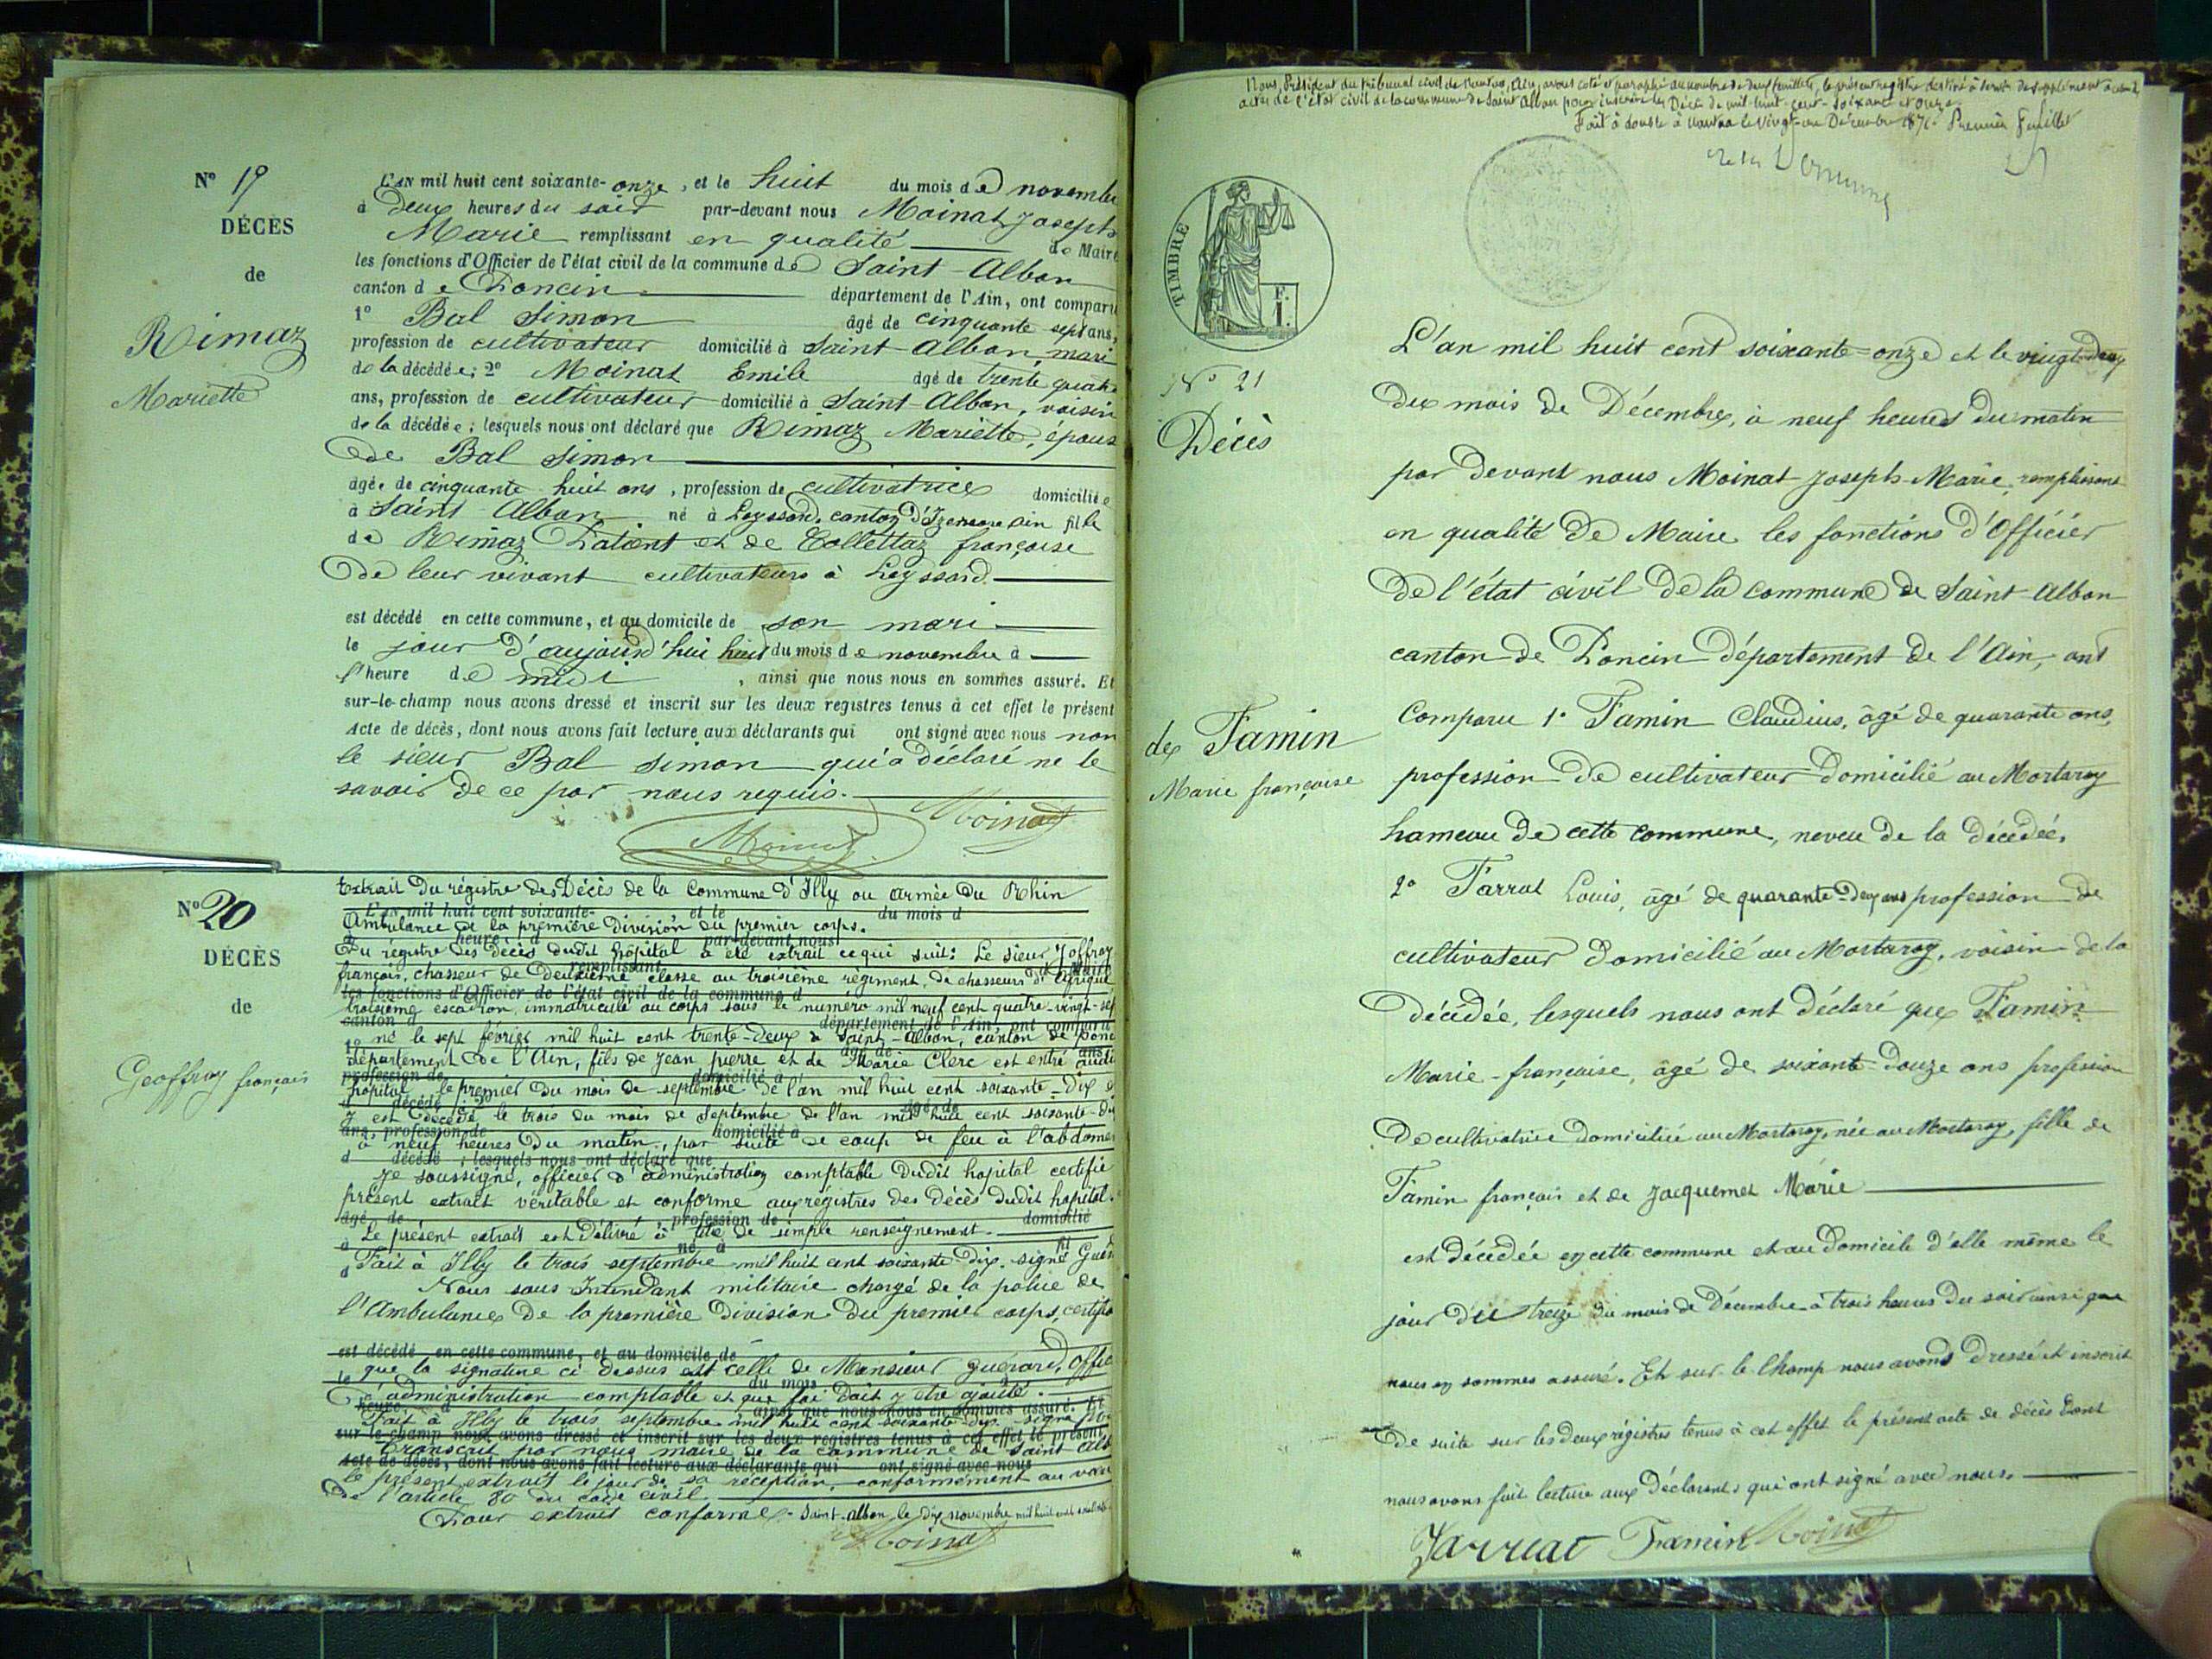 No 19
DÉCÈS
de
Rimaz
Mariette
L'AN mil huit cent soixante-onze, et le huit du mois de novembre
à deux heures du soir par-devant nous Moinat Joseph
Marie remplissant en qualité de Maire
les fonctions d'Officier de l'état civil de la commune de Saint-Alban
canton de Poncin département de l'Ain, ont comparu
1o Bal Simon âgé de cinquante sept ans,
profession de cultivateur domicilié à Saint-Alban, mari
de la décédée; 2o Moinat Emile âgé de trente quatre
ans, profession de cultivateur domicilié à Saint-Alban, voisin
de la décédée; lesquels nous ont déclaré que Rimaz Mariette, épouse
de Bal Simon
âgée de cinquante huit ans, profession de cultivatrice domiciliée
à Saint-Alban né à Leyssard, canton d'Izernore Ain fille
de Rimaz Patient et de Collettaz françoise
de leur vivant cultivateurs à Leyssard.
est décédé en cette commune, et au domicile de son mari
le jour d'aujourd'hui huit du mois de novembre à
l'heure de midi, ainsi que nous nous en sommes assuré. Et
sur-le-champ nous avons dressé et inscrit sur les deux registres tenus à cet effet le présent
Acte de décès, dont nous avons fait lecture aux déclarants qui ont signé avec nous non
le sieur Bal Simon qui a déclaré ne le
savoir de ce par nous requis.
Moinat
Moinat
No 20
DÉCÈS
de
Geoffray français
Extrait du régistre des Décès de la Commune d'Illy ou armée du Rhin
L'AN mil huit cent soixante- et le du mois d
Ambulance de la première Division du premier corps.
heure d par-devant nous
Du régistre des décès dudit hôpital a été extrait ce qui suit: Le sieur Joffray
remplissant de Maire
français, chasseur de deuxième classe au troisième régiment de chasseurs d'Afrique
les fonctions d'Officier de l'état civil de la commune d
troisième escadron, immatriculé au corps sous le numéro mil neuf cent quatre-vingt-sep
canton d département de l'Ain, ont comparu
1o né le sept février mil huit cent trente-deux à Saint-Alban, canton de Ponc
âgé de ans,
département de l'Ain, fils de Jean pierre et de Marie Clerc est entré audit
profession de domicilié à
hôpital le premier du mois de septembre de l'an mil huit cent soixante-dix e
d décédé; 2o âgé de
y est décédé le trois du mois de Septembre de l'an mil huit cent soixante-dix
ans, profession de domicilié à
à neuf heures du matin, par suite de coup de feu à l'abdomen
d décédé; lesquels nous ont déclaré que
Je soussigné, officier d'administration comptable dudit hôpital certifie
présent extrait véritable et conforme aux régistres des décès dudit hôpital.
âgé de profession de domicilié
à Le présent extrait est délivré à titre de simple renseignement.
né à fil
d Fait à Illy le trois septembre mil huit cent soixante dix. signé Guér
Nous sous Intendant militaire chargé de la police de
l'Ambulance de la première Division du premier corps, certifio
est décédé en cette commune, et au domicile de
que la signature ci dessus est celle de Monsieur Guérard, offic
le du mois
d'administration comptable et que foi doit y être ajouté.
heure d ainsi que nous nous en sommes assuré. Et
Fait à Illy le trois septembre mil huit cent soixante-dix. signé
sur-le-champ nous avons dressé et inscrit sur les deux registres tenus à cet effet le présent
Transcrit par nous maire de la commune de Saint Alb
Acte de décès, dont nous avons fait lecture aux déclarants qui ont signé avec nous
le présent extrait le jour de sa réception, conformément au vœu
de l'article 80 du code civil.
Pour extrait conforme. Saint-Alban le dix novembre mil huit cent
Moinat
Nous, Président du tribunal civil de Nantua, Ain, avons coté et paraphé au nombre de deux feuillets, le présent registre destiné à servir de supplément
actes de l'état civil de la commune de Saint Alban pour inscrire les Décès de mil-huit-cent-soixante et onze.
Fait à double à Nantua le vingt-un Décembre 1871. Premier feuillet
TIMBRE
F.
1.
No 21
Décès
de Famin
Marie françoise
L'an mil huit cent soixante-onze et le vingt-deux
du mois de Décembre, à neuf heures du matin
par devant nous Moinat Joseph-Marie, remplissant
en qualité de Maire les fonctions d'Officier
de l'état civil de la commune de Saint-Alban
canton de Poncin département de l'Ain, ont
comparu 1o Famin Claudius, âgé de quarante ans,
profession de cultivateur domicilié au Mortaray
hameau de cette commune, neveu de la décédée,
2o Jarruat Louis, âgé de quarante-deux ans profession de
cultivateur domicilié au Mortaray, voisin de la
décédée, lesquels nous ont déclaré que Famin
Marie-françoise, âgé de soixante-douze ans profession
de cultivatrice domiciliée au Mortaray, née au Mortaray, fille de
Famin français et de Jacquemet Marie
est décédée en cette commune et au domicile d'elle même le
jour du treize du mois de Décembre à trois heures du soir ainsi que
nous en sommes assuré. Et sur-le-champ nous avons dressé et inscrit
de suite sur les deux régistres tenus à cet effet le présent acte de décès dont
nous avons fait lecture aux déclarants qui ont signé avec nous.
Jarruat Famin Moinat